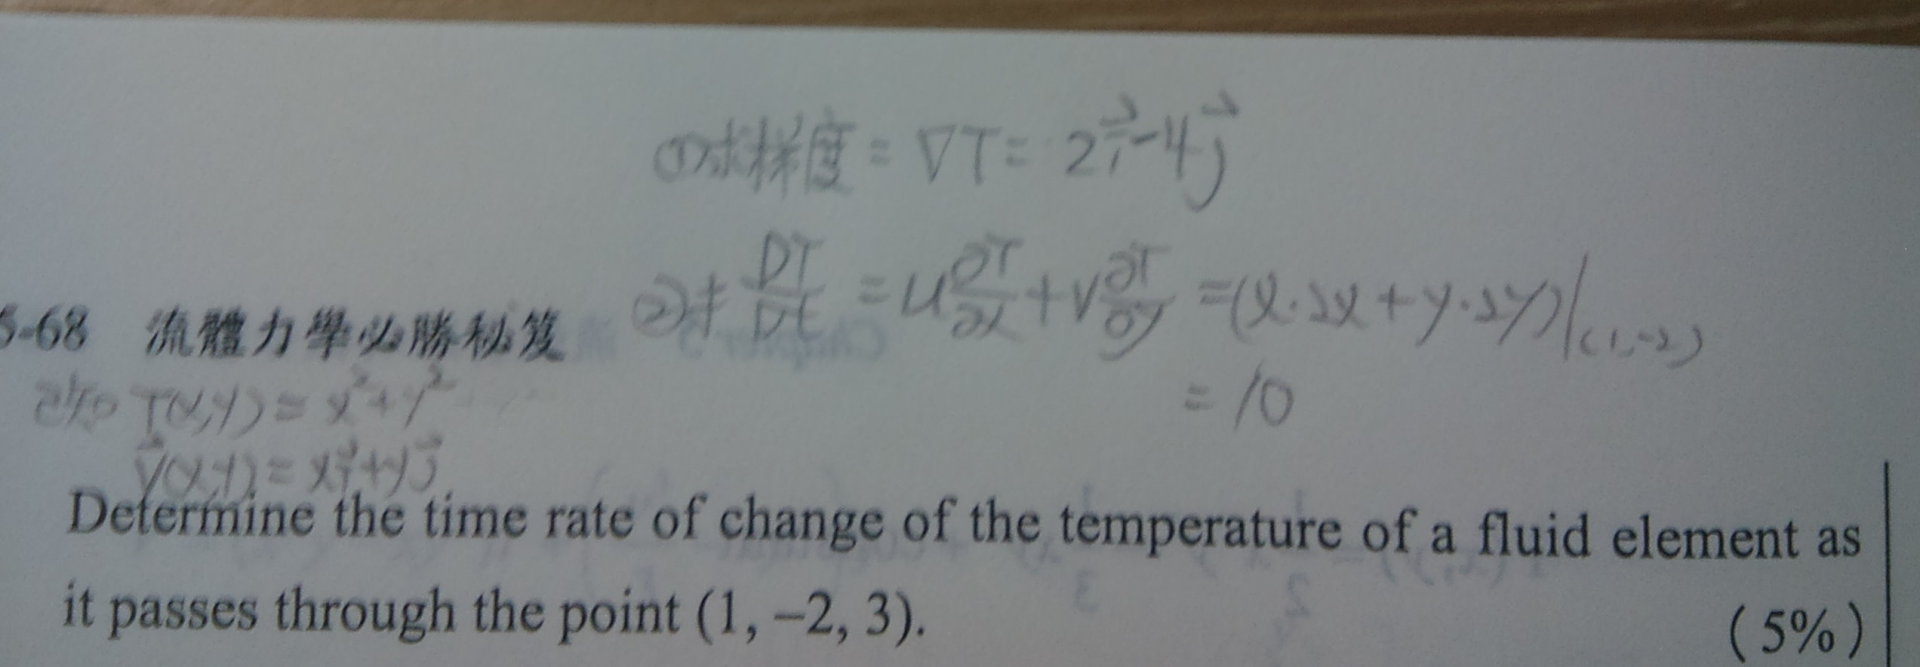 ①求梯度 = ∇T = 2i⃗ - 4j⃗
②求 DT/Dt = u ∂T/∂x + v ∂T/∂y = (x·2x + y·2y)|(1,-2)
= 10
5-68 流體力學必勝秘笈
已知 T(x,y) = x² + y²
V⃗(x,y) = xi⃗ + yj⃗
Determine the time rate of change of the temperature of a fluid element as
it passes through the point (1, –2, 3). (5%)